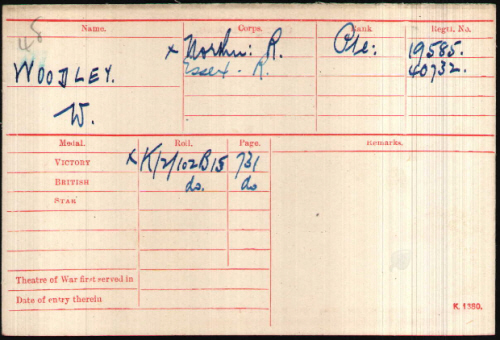 48
Name. Corps. Rank Regtl. No.
WOODLEY. x North'n: R. Pte: 19585.
W. Essex. R. 40732.
Medal. Roll. Page. Remarks.
VICTORY x K/2/102B15 731
BRITISH do. do
STAR
Theatre of War first served in
Date of entry therein
K. 1380.